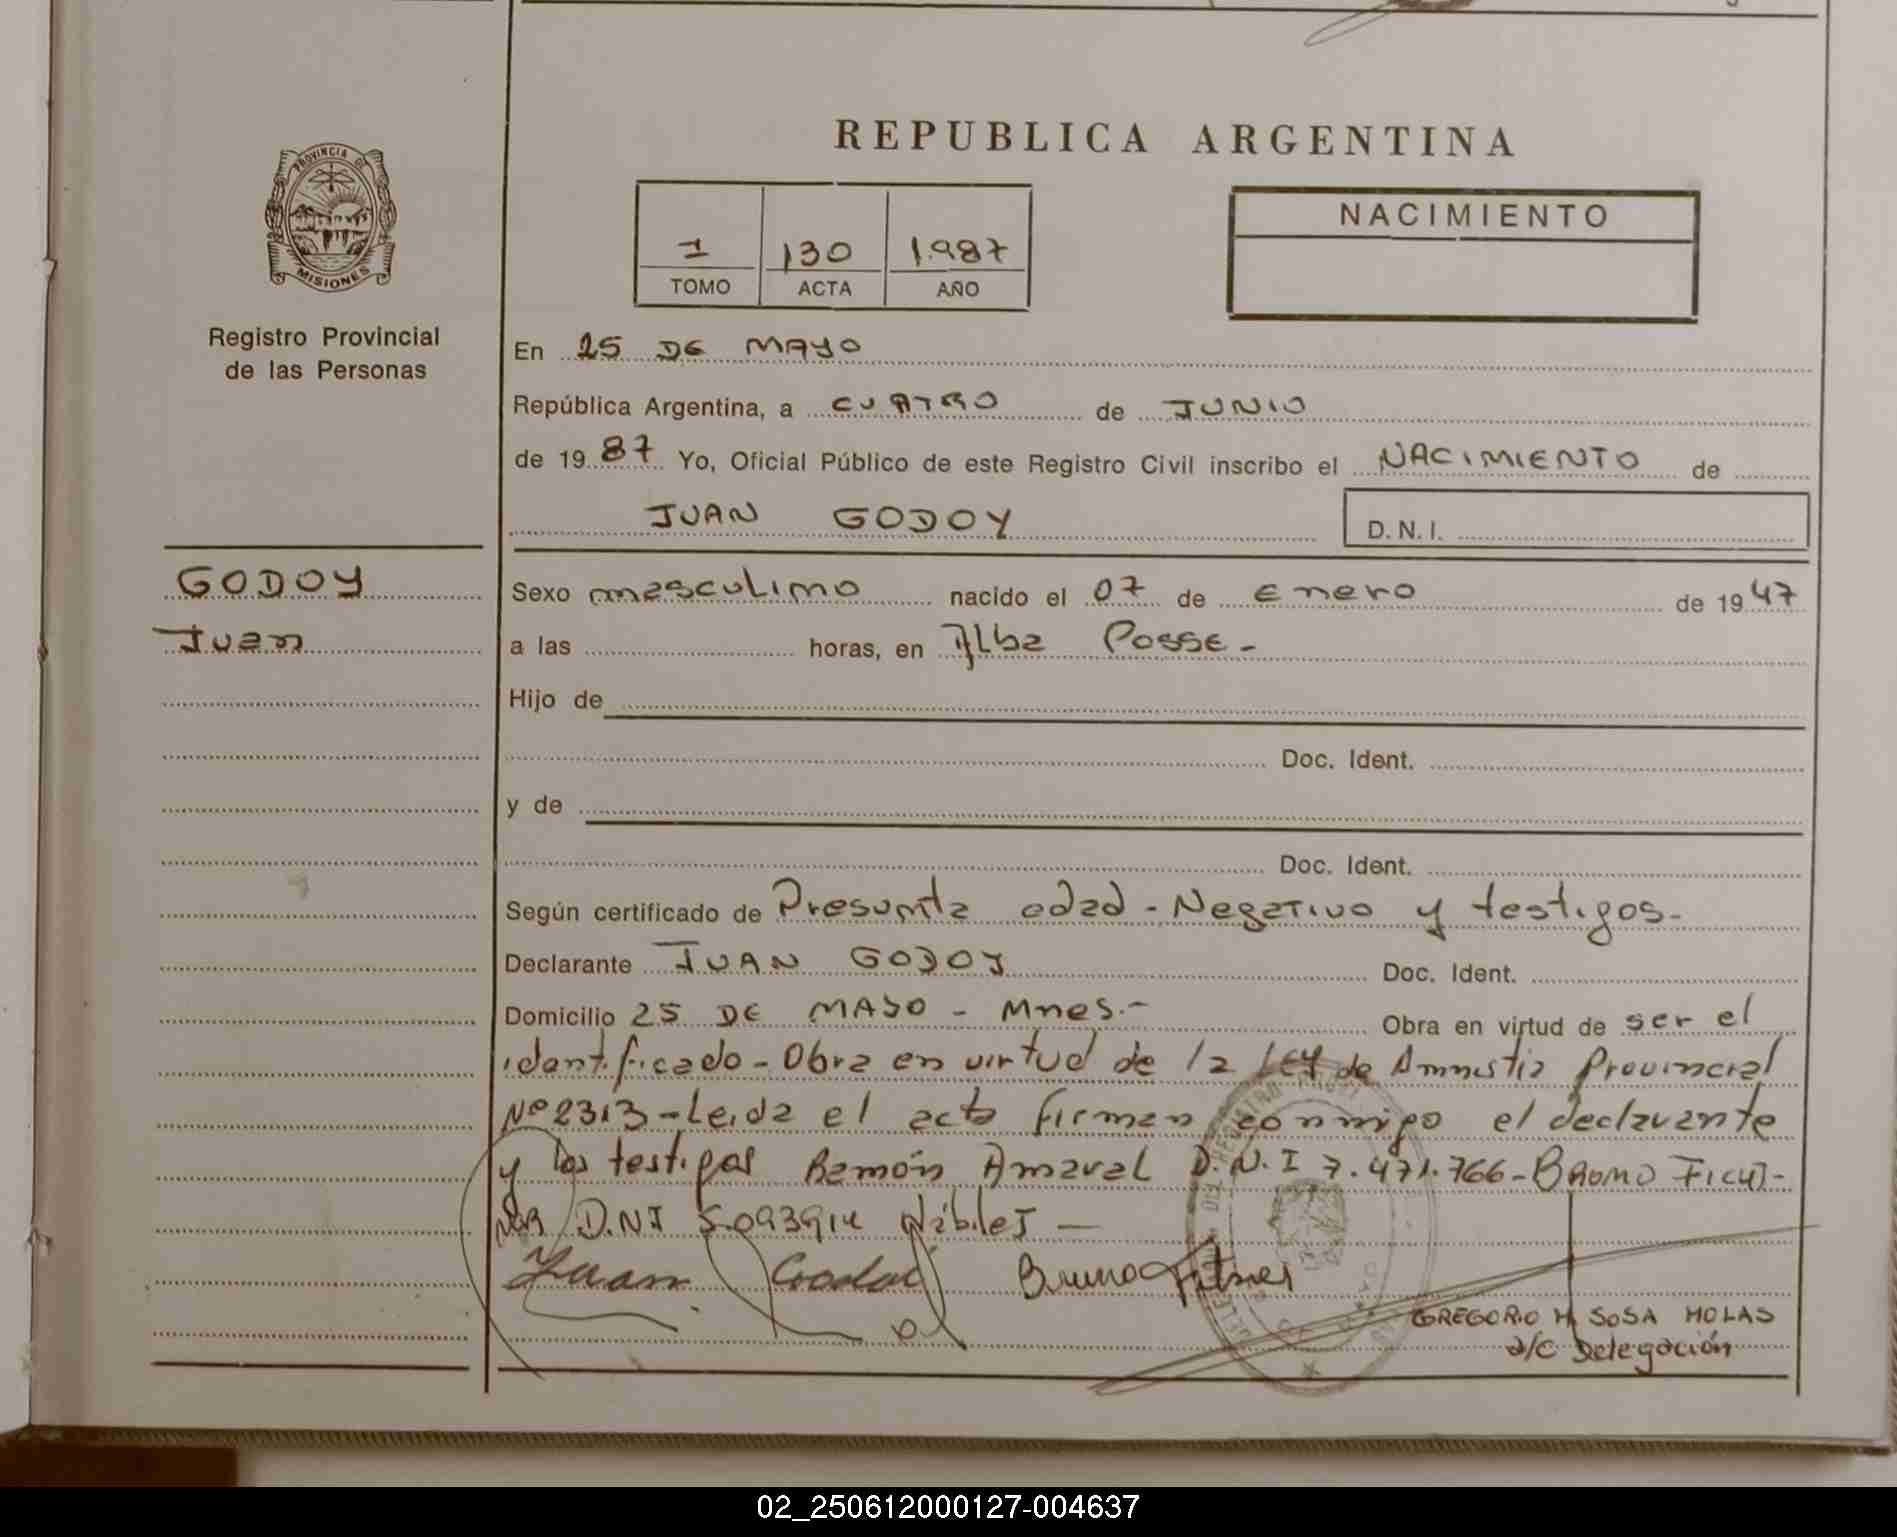 REPUBLICA ARGENTINA
PROVINCIA DE
MISIONES
Registro Provincial
de las Personas
1 130 1.987
TOMO ACTA AÑO
NACIMIENTO
En 25 DE MAYO
República Argentina, a CUATRO de JUNIO
de 19 87 Yo, Oficial Público de este Registro Civil inscribo el NACIMIENTO de
JUAN GODOY D.N.I.
GODOY
Juan
Sexo masculino nacido el 07 de Enero de 19 47
a las horas, en Alba Posse -
Hijo de
Doc. Ident.
y de
Doc. Ident.
Según certificado de Presunta edad - Negativo y testigos -
Declarante JUAN GODOY Doc. Ident.
Domicilio 25 DE MAYO - Mnes.- Obra en virtud de ser el
identificado - Obra en virtud de la LEY de Amnistia Provincial
Nº 2313 - Leida el acta firman conmigo el declarante
y los testigos Ramón Amaral D.N.I 7.471.766 - BRUNO
D.N.I
Juan Godoy Bruno
GREGORIO M. SOSA MOLAS
a/c Delegación
02_250612000127-004637